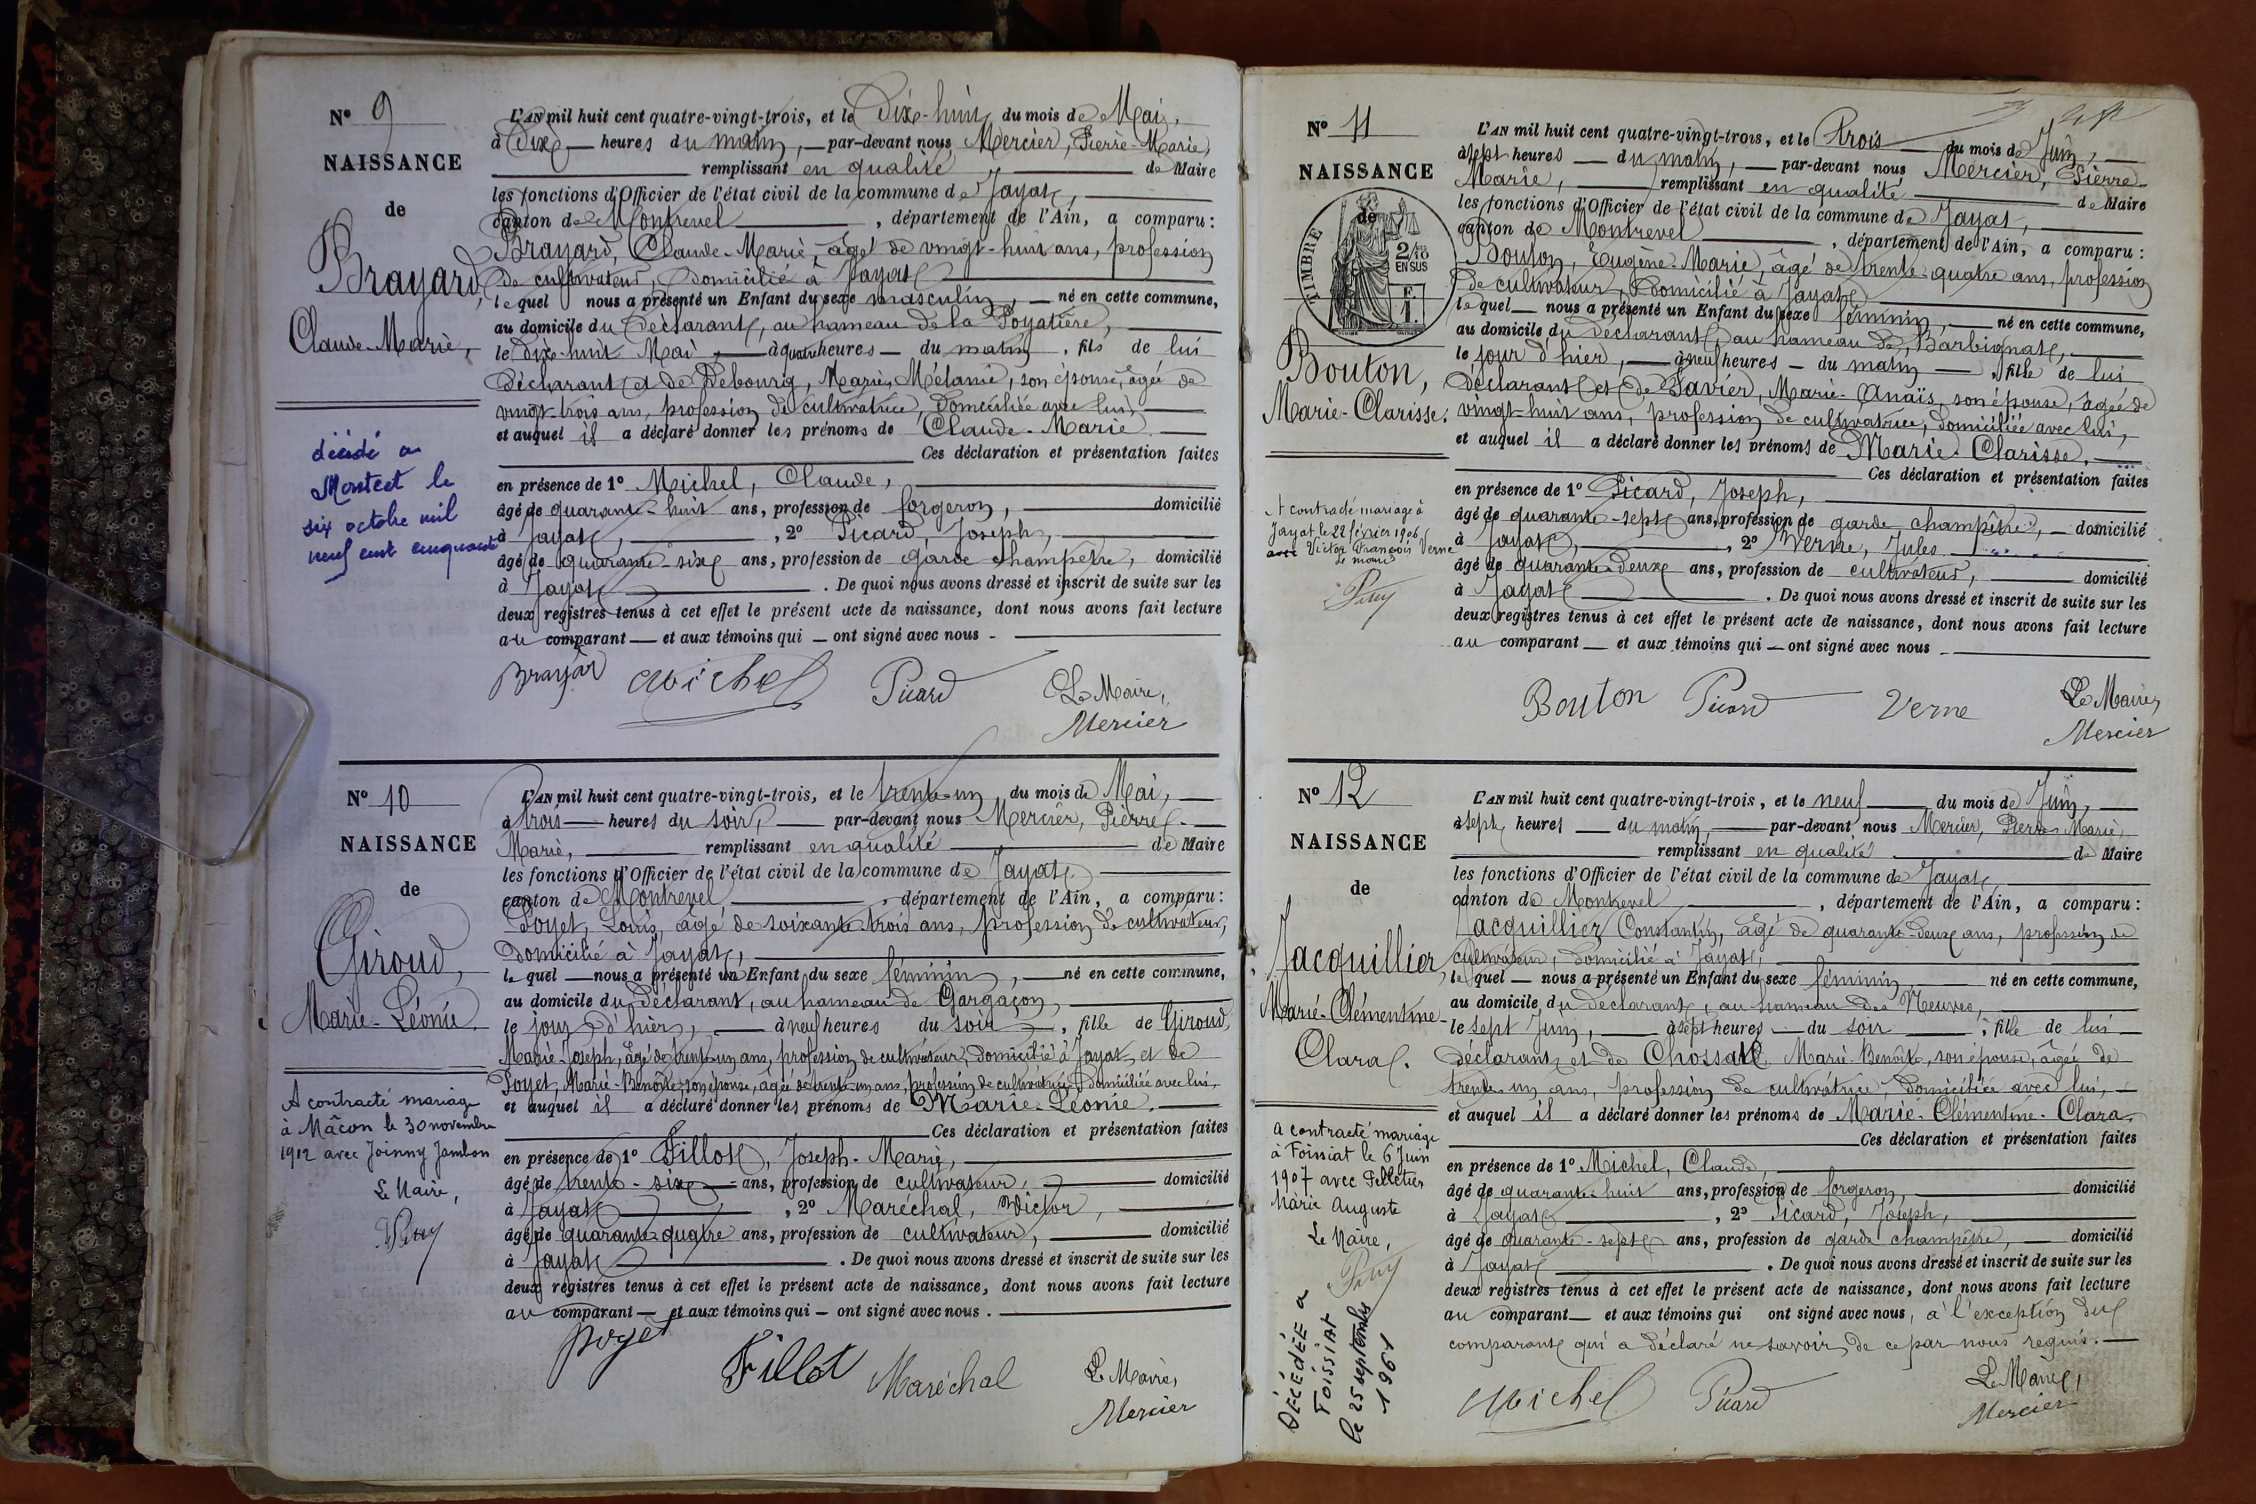 N° 9
NAISSANCE
de
Brayard,
Claude-Marie,
décédé à
Montcet le
six octobre mil
neuf cent cinquante
L'AN mil huit cent quatre-vingt-trois, et le dix-huit du mois de Mai,
à dix heures du matin, par-devant nous Mercier, Pierre-Marie,
remplissant en qualité de Maire
les fonctions d'Officier de l'état civil de la commune de Jayat,
canton de Montrevel, département de l'Ain, a comparu:
Brayard, Claude-Marie, âgé de vingt-huit ans, profession
de cultivateur, domicilié à Jayat
lequel nous a présenté un Enfant du sexe masculin, né en cette commune,
au domicile du déclarant, au hameau de la Poyatière,
le dix-huit Mai, à quatre heures du matin, fils de lui
déclarant et de Debourg, Marie-Mélanie, son épouse, âgée de
vingt-trois ans, profession de cultivatrice, domiciliée avec lui,
et auquel il a déclaré donner les prénoms de Claude-Marie.
Ces déclaration et présentation faites
en présence de 1° Michel, Claude,
âgé de quarante-huit ans, profession de forgeron, domicilié
à Jayat, 2° Picard, Joseph,
âgé de quarante-six ans, profession de garde champêtre, domicilié
à Jayat. De quoi nous avons dressé et inscrit de suite sur les
deux registres tenus à cet effet le présent acte de naissance, dont nous avons fait lecture
au comparant et aux témoins qui ont signé avec nous.
Brayar Michel Picard Le Maire,
Mercier
N° 10
NAISSANCE
de
Giroud,
Marie-Léonie.
A contracté mariage
à Mâcon le 30 novembre
1912 avec Joinny Jambon
Le Maire,
L'AN mil huit cent quatre-vingt-trois, et le trente-un du mois de Mai,
à trois heures du soir, par-devant nous Mercier, Pierre-
Marie, remplissant en qualité de Maire
les fonctions d'Officier de l'état civil de la commune de Jayat
canton de Montrevel, département de l'Ain, a comparu:
Poyet, Louis, âgé de soixante-trois ans, profession de cultivateur,
domicilié à Jayat,
lequel nous a présenté un Enfant du sexe féminin, né en cette commune,
au domicile du déclarant, au hameau de Gargaçon,
le jour d'hier, à neuf heures du soir, fille de Giroud,
Marie-Joseph, âgé de trente-un ans, profession de cultivateur, domicilié à Jayat et de
Poyet, Marie-Benoîte, son épouse, âgée de trente-un ans, profession de cultivatrice, domiciliée avec lui,
et auquel il a déclaré donner les prénoms de Marie-Léonie.
Ces déclaration et présentation faites
en présence de 1° Fillot, Joseph-Marie,
âgé de trente-six ans, profession de cultivateur, domicilié
à Jayat, 2° Maréchal, Victor,
âgé de quarante-quatre ans, profession de cultivateur, domicilié
à Jayat. De quoi nous avons dressé et inscrit de suite sur les
deux registres tenus à cet effet le présent acte de naissance, dont nous avons fait lecture
au comparant et aux témoins qui ont signé avec nous.
poyet Fillot Maréchal Le Maire,
Mercier
N° 11
NAISSANCE
de
TIMBRE
2/10
EN SUS
Bouton,
Marie-Clarisse.
A contracté mariage à
Jayat le 22 février 1906
avec Victor François Verne
Le maire
L'AN mil huit cent quatre-vingt-trois, et le trois du mois de Juin,
à sept heures du matin, par-devant nous Mercier, Pierre-
Marie, remplissant en qualité de Maire
les fonctions d'Officier de l'état civil de la commune de Jayat,
canton de Montrevel, département de l'Ain, a comparu:
Bouton, Eugène-Marie, âgé de trente-quatre ans, profession
de cultivateur, domicilié à Jayat
lequel nous a présenté un Enfant du sexe féminin, né en cette commune,
au domicile du déclarant, au hameau de Barbignat,
le jour d'hier, à neuf heures du matin, fille de lui
déclarant et de Pavier, Marie-Anaïs, son épouse, âgée de
vingt-huit ans, profession de cultivatrice, domiciliée avec lui,
et auquel il a déclaré donner les prénoms de Marie-Clarisse.
Ces déclaration et présentation faites
en présence de 1° Picard, Joseph,
âgé de quarante-sept ans, profession de garde champêtre, domicilié
à Jayat, 2° Verne, Jules
âgé de quarante-deux ans, profession de cultivateur, domicilié
à Jayat. De quoi nous avons dressé et inscrit de suite sur les
deux registres tenus à cet effet le présent acte de naissance, dont nous avons fait lecture
au comparant et aux témoins qui ont signé avec nous
Bouton Picard Verne Le Maire,
Mercier
N° 12
NAISSANCE
de
Jacquillier,
Marie-Clémentine-
Clara.
a contracté mariage
à Foissiat le 6 Juin
1907 avec Pelletier
Marie Auguste
Le Maire,
DÉCÉDÉE à
FOISSIAT
le 25 septembre
1961
L'AN mil huit cent quatre-vingt-trois, et le neuf du mois de Juin,
à sept heures du matin, par-devant nous Mercier, Pierre-Marie,
remplissant en qualité de Maire
les fonctions d'Officier de l'état civil de la commune de Jayat
canton de Montrevel, département de l'Ain, a comparu:
Jacquillier Constantin, âgé de quarante-deux ans, profession de
cultivateur, domicilié à Jayat,
lequel nous a présenté un Enfant du sexe féminin né en cette commune,
au domicile du déclarant, au hameau des Meuves,
le sept Juin, à sept heures du soir, fille de lui
déclarant et de Chossat Marie-Benoîte, son épouse, âgée de
trente-un ans, profession de cultivatrice, domiciliée avec lui,
et auquel il a déclaré donner les prénoms de Marie-Clémentine-Clara.
Ces déclaration et présentation faites
en présence de 1° Michel, Claude,
âgé de quarante-huit ans, profession de forgeron, domicilié
à Jayat, 2° Picard, Joseph,
âgé de quarante-sept ans, profession de garde champêtre, domicilié
à Jayat. De quoi nous avons dressé et inscrit de suite sur les
deux registres tenus à cet effet le présent acte de naissance, dont nous avons fait lecture
au comparant et aux témoins qui ont signé avec nous, à l'exception du
comparant qui a déclaré ne savoir, de ce par nous requis.
Michel Picard Le Maire,
Mercier